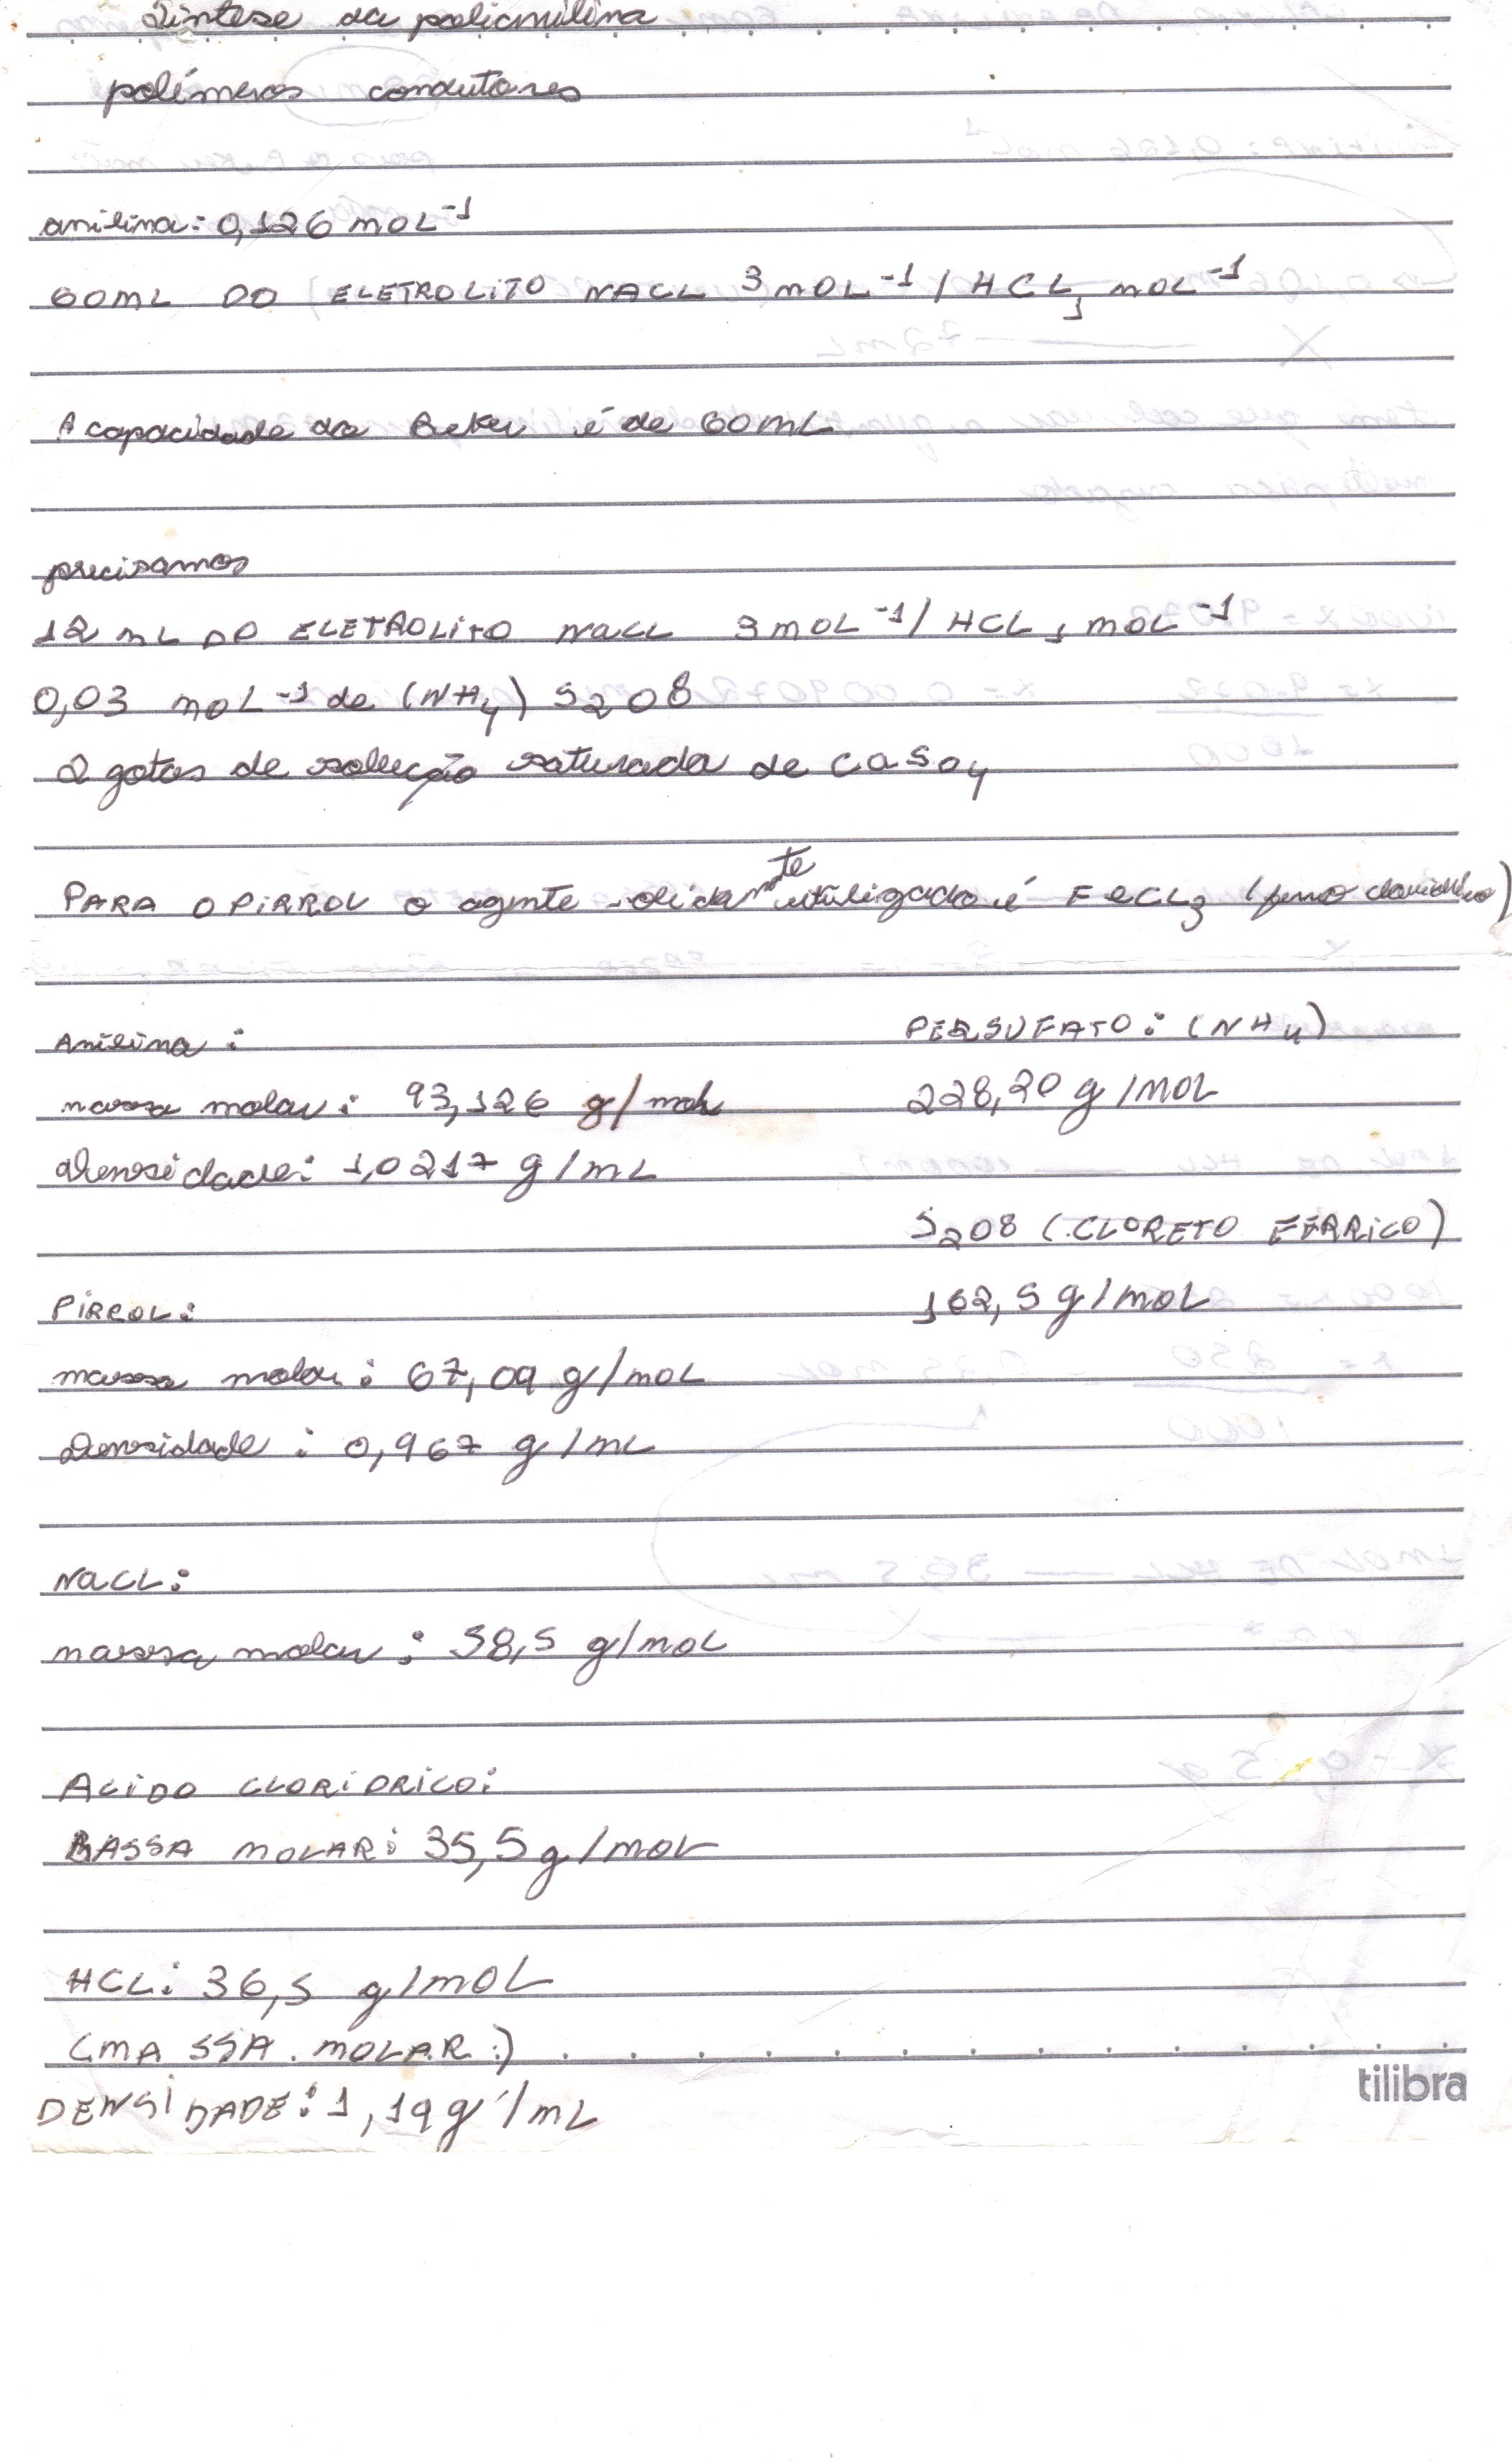 Síntese da polianilina
polímeros condutores
anilina: 0,126 moL⁻¹
60mL DO ELETROLITO NACL 3 moL⁻¹ / HCL 1 moL⁻¹
A capacidade do Beker é de 60mL
precisamos
12 mL DO ELETROLITO NaCL 3 moL⁻¹ / HCL 1 moL⁻¹
0,03 moL⁻¹ de (NH4) S2O8
2 gotas de solução saturada de CaSO4
PARA O PIRROL o agente oxidante utilizado é FeCL3 (ferro
Anilina:
PERSUFATO: (NH4)
massa molar: 93,126 g/mol
228,20 g/moL
densidade: 1,0217 g/mL
S2O8 (CLORETO FÉRRICO)
PIRROL:
162,5 g/moL
massa molar: 67,09 g/moL
densidade: 0,967 g/mL
NaCL:
massa molar: 58,5 g/moL
ACIDO CLORIDRICO:
MASSA MOLAR: 35,5 g/moL
HCL: 36,5 g/moL
(MASSA MOLAR:)
tilibra
DENSIDADE: 1,19 g/mL